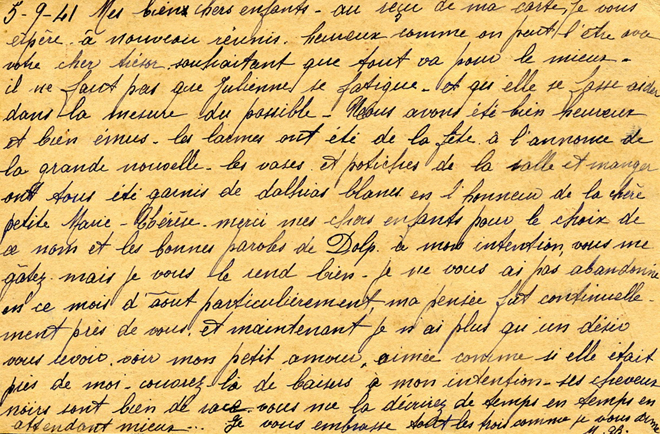 5-9-41 Mes bien chers enfants - au reçu de ma carte, je vous
espère à nouveau réunis. heureux comme on peut l'être avec
votre cher trésor. souhaitant que tout va pour le mieux -
il ne faut pas que Julienne se fatigue - et qu'elle se fasse aider
dans la mesure du possible - Nous avons été bien heureux
et bien émus - les larmes ont été de la fête à l'annonce de
la grande nouvelle - les vases et potiches de la salle et manger
ont tous été garnis de dalhias blancs en l'honneur de la chère
petite Marie-Thérèse. merci mes chers enfants pour le choix de
ce nom et les bonnes paroles de Dolp. à mon intention, vous me
gâtez - mais je vous le rend bien - je ne vous ai pas abandonné
en ce mois d'août particulièrement, ma pensée fut continuelle-
ment près de vous. et maintenant je n'ai plus qu'un désir
vous revoir. voir mon petit amour, aimée comme si elle était
près de moi - couvrez la de baisers à mon intention - ses cheveux
noirs sont bien de race - vous me la décrirez de temps en temps en
attendant mieux... Je vous embrasse tout les trois comme je vous aime